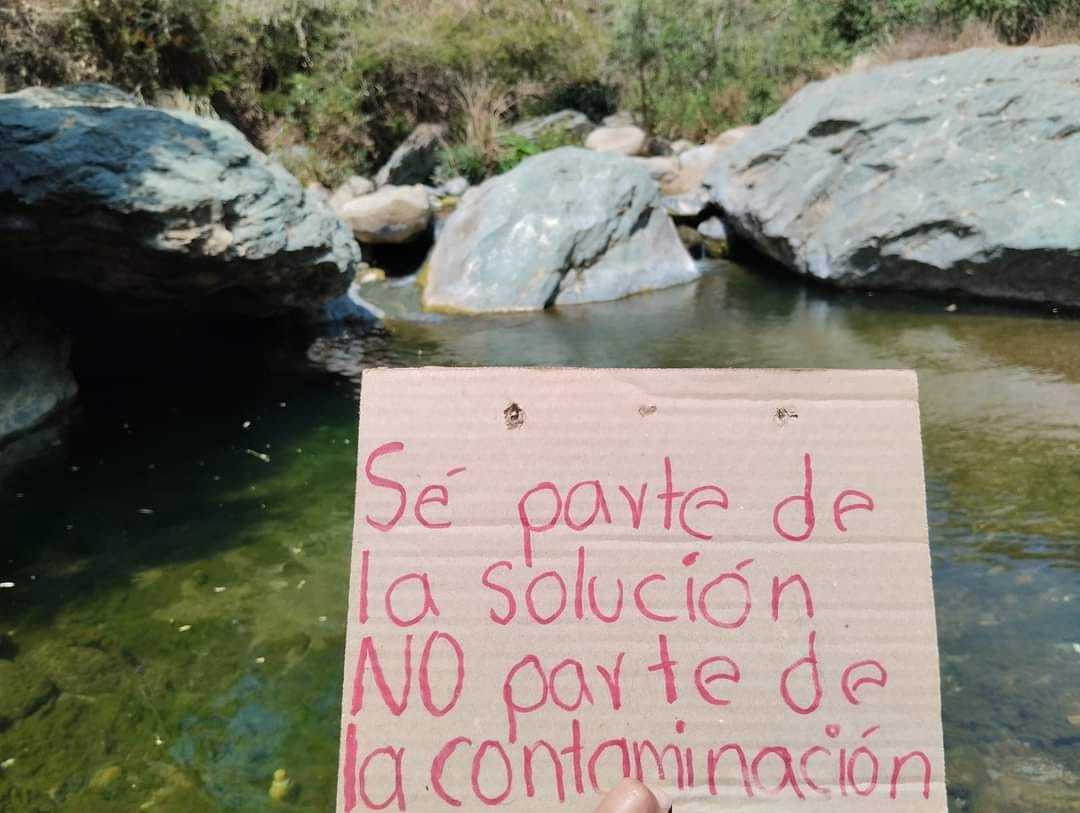 Sé parte de
la solución
NO parte de
la contaminación